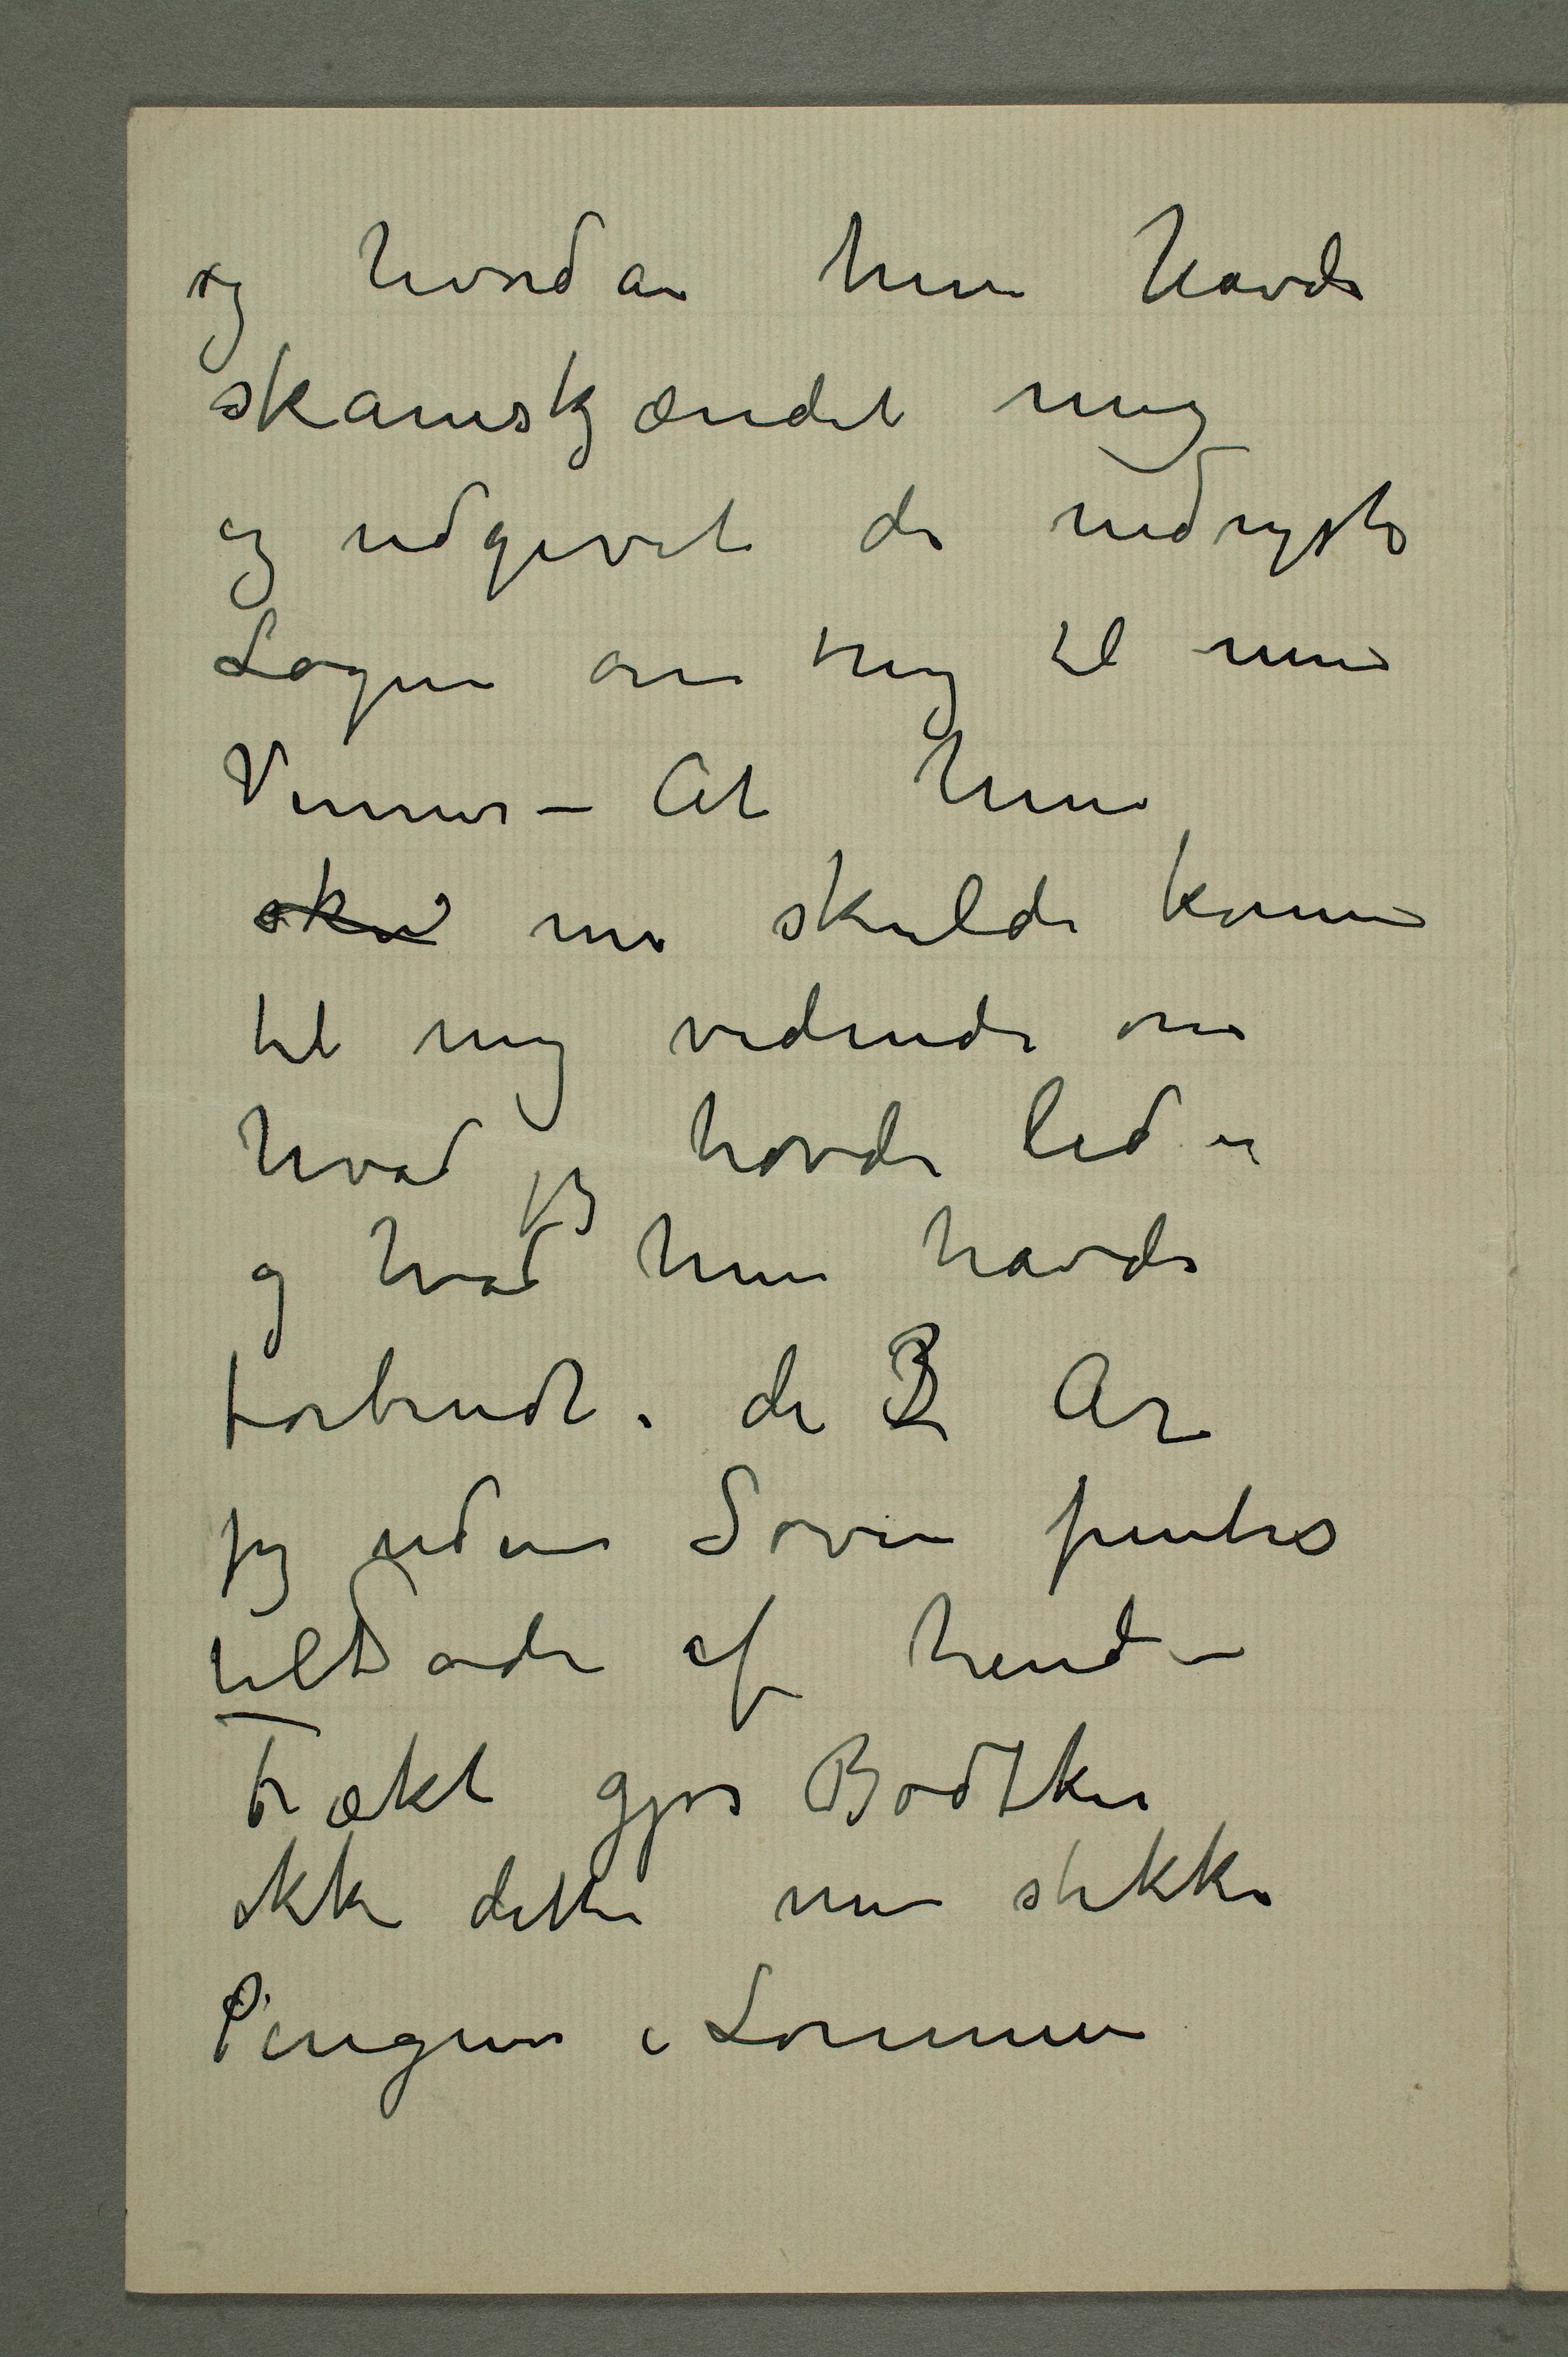 og hvordan hun havde
skamskjændet mig
og udgivet de nedrigste
Løgne om mig til mine
Venner – At hun
sku nu skulde komme
til mig vidende om
hvad jeg havde lidt
og hvad hun havde
forbrudt. de 3 Ar
jeg uden Søvn pintes
tilbade af hende –
Frækt gjør Bødtker
ikke dette men stikke
Pengene i Lommen